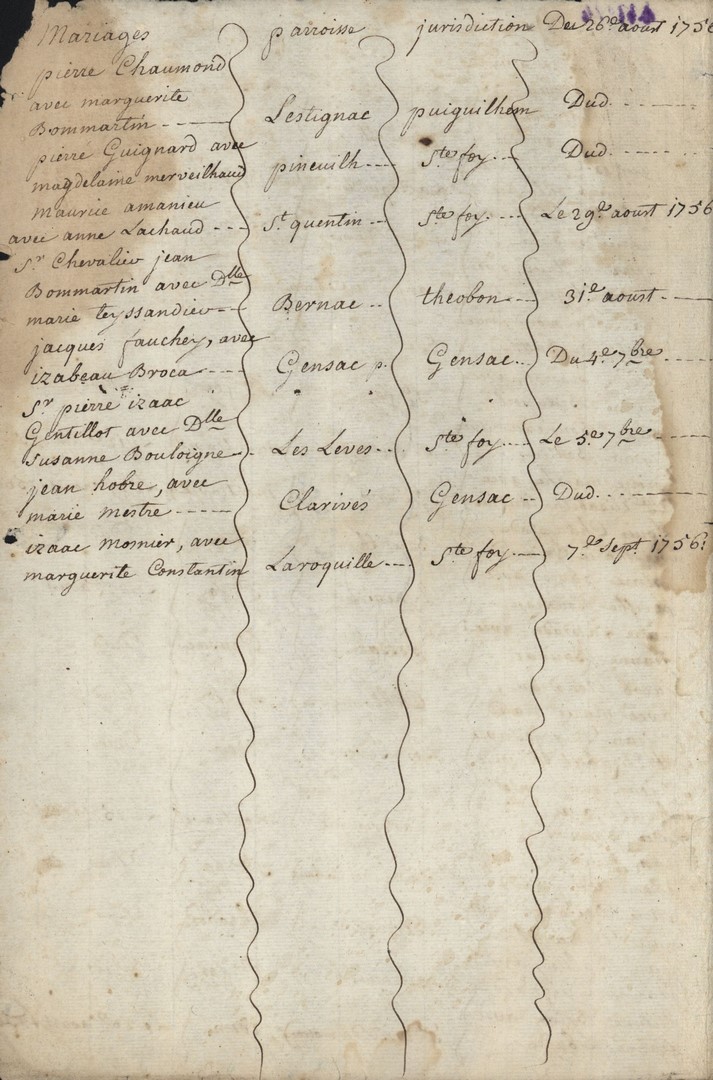 Mariages parroisse jurisdiction Du 26e. aoust 1756
pierre Chaumond
avec marguerite
Bommartin - - - Lestignac puiguilhem Dud. - - - -
pierre Guignard avec
magdelaine merveilhaud pineuilh - - - Ste foy - - - Dud. - - - -
maurice amanieu
avec anne Lachaud - - - St. quentin - - Ste foy - - - Le 29e. aoust 1756
Sr. Chevalier jean
Bommartin avec Dlle
marie teyssandier - - Bernac - - theobon - - - 31ie. aoust - - -
jacques fauchey, avec
izabeau Broca - - - Gensac p. Gensac - - Du 4e. 7bre - - - -
Sr. pierre izaac
Gentillot avec Dlle
Susanne Bouloigne - - Les Leves - - Ste foy - - - Le 5e. 7bre - - - -
jean hobre, avec
marie mestre - - - - Clarives Gensac - - Dud. - - - - -
izaac mosnier, avec
marguerite Constantin Laroquille - - - Ste foy - - - 7e. Sept. 1756.